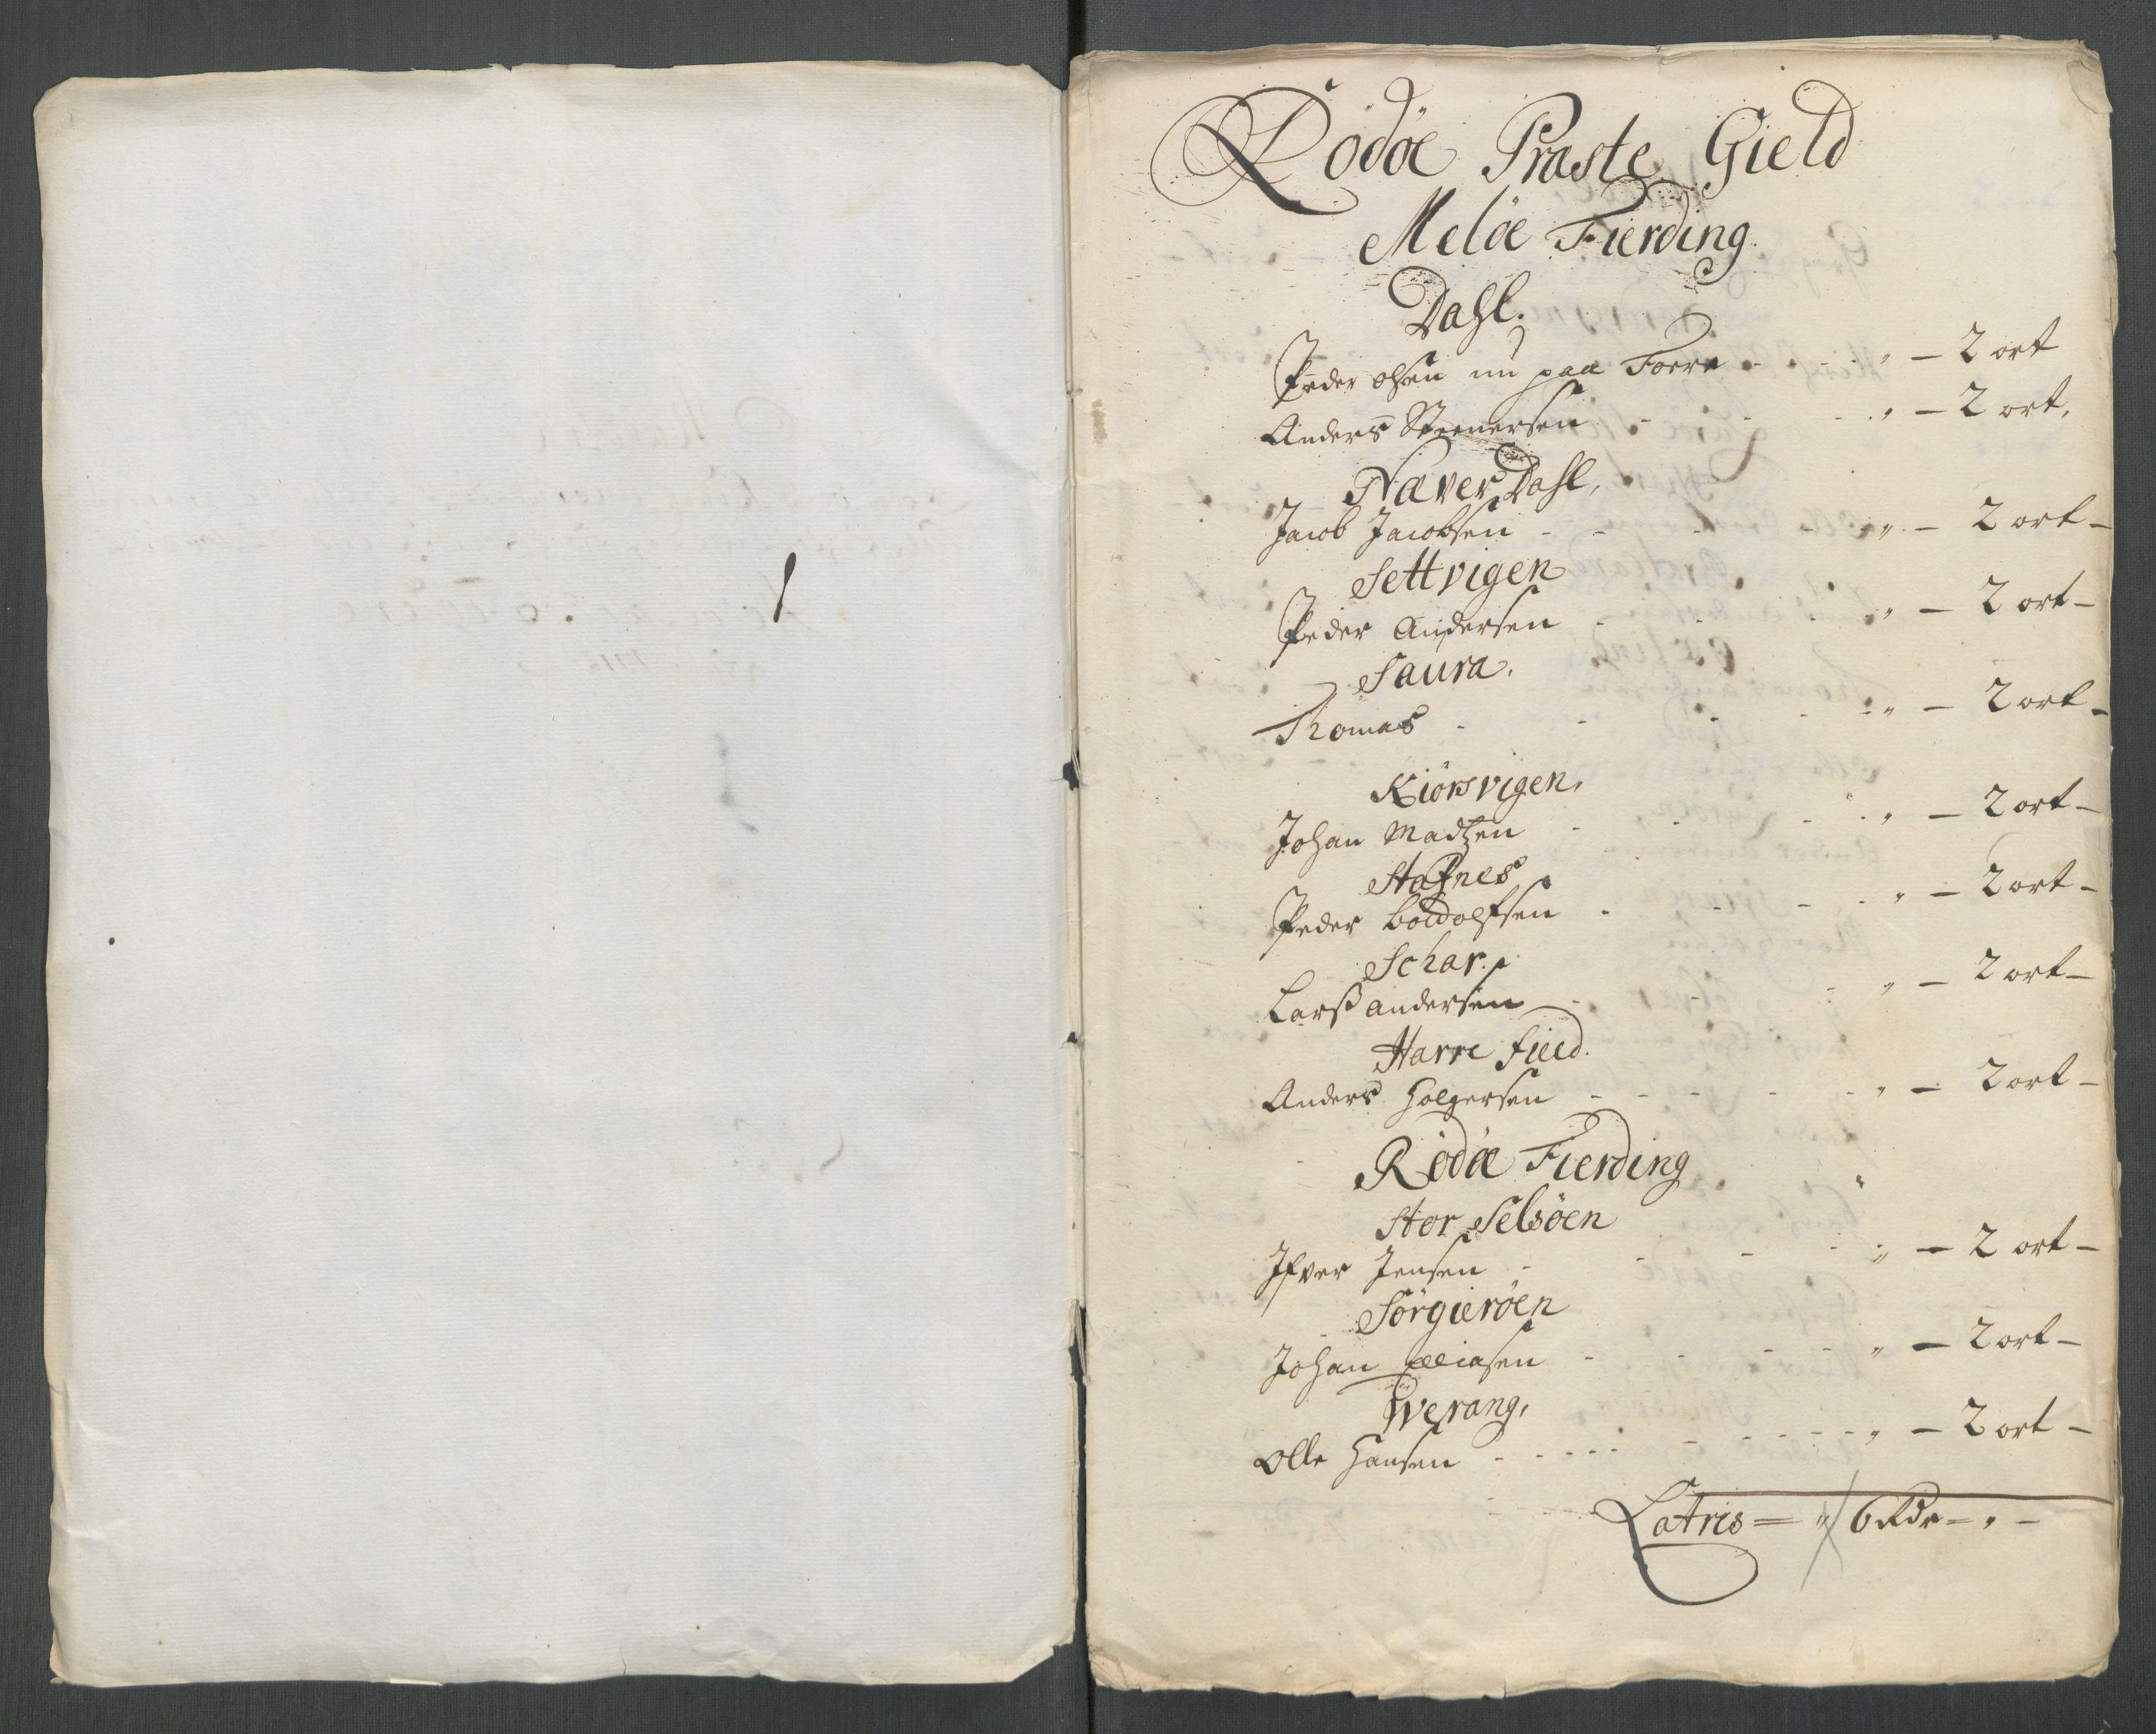 Rodöe Præste Gield
Meløe Fierding.
Dahl.
Peder Olsen nu paa Foere - - - „ — 2 ort
Anders Steenersen - - - „ — 2 ort,
Næver Dahl,
Jacob Jacobsen - - - „ — 2 ort —
Settvigen
Peder Andersen - - - „ — 2 ort —
Saura.
Thomas - - - - „ — 2 ort —
Kiörsvigen,
Johan Madtzen - - - „ — 2 ort —
Stafnes
Peder Boldolfsen - - - „ — 2 ort —
Schar.
Larss Andersen - - - „ — 2 ort —
Harre field.
Anders Holgersen - - - „ — 2 ort —
Rödöe Fierding
Stor Selsöen
Ifver Jensen - - - „ — 2 ort —
Sörgieröen
Johan Eliasen - - - „ — 2 ort —
Werang,
Olle Hansen - - - - „ — 2 ort —
Latris = „ 6 Rdr = „ —